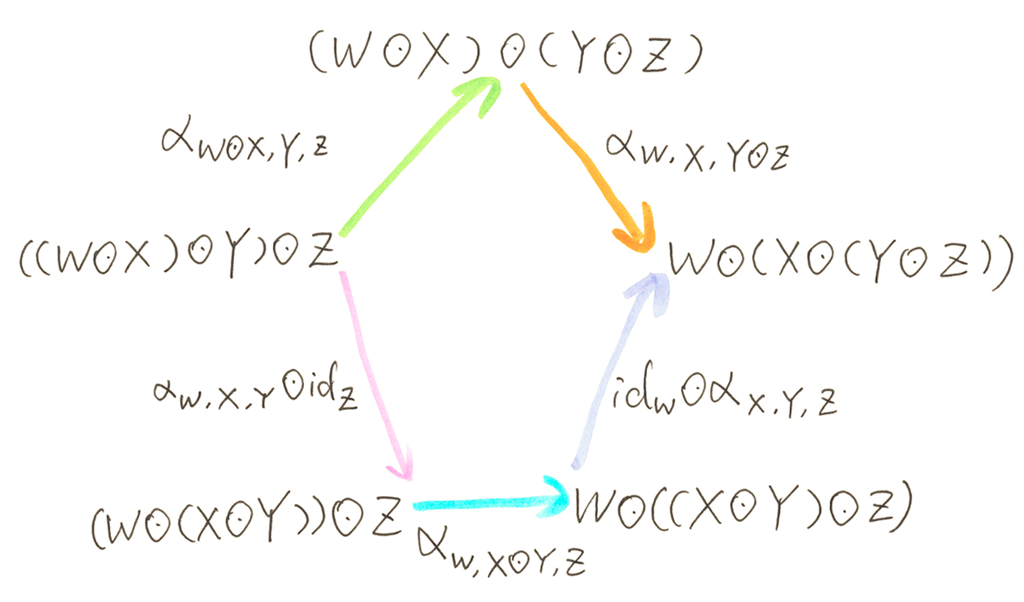 (W⊙X)⊙(Y⊙Z)
α_{W⊙X,Y,Z}
α_{W,X,Y⊙Z}
((W⊙X)⊙Y)⊙Z
W⊙(X⊙(Y⊙Z))
α_{W,X,Y}⊙id_Z
id_W⊙α_{X,Y,Z}
(W⊙(X⊙Y))⊙Z
W⊙((X⊙Y)⊙Z)
α_{W,X⊙Y,Z}